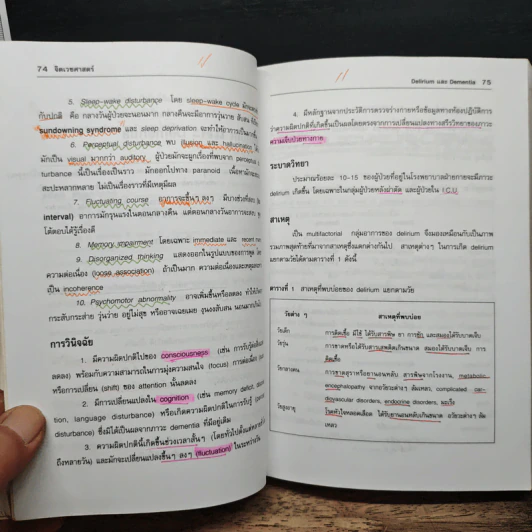 74 จิตเวชศาสตร์
5. Sleep-wake disturbance โดย sleep-wake cycle
กับปกติ คือ กลางวันผู้ป่วยจะนอนมาก กลางคืนจะมีอาการวุ่นวาย สับสน
sundowning syndrome และ sleep deprivation จะทำให้อาการเป็นมากขึ้น
6. Perceptual disturbance พบ illusion และ hallucination
มักเป็น visual มากกว่า auditory ผู้ป่วยมักจะผูกเรื่องที่พบจาก perceptual
turbance นี้เป็นเรื่องเป็นราว มักออกไปทาง paranoid
สะปะหลากหลาย ไม่เป็นเรื่องราวที่มีเหตุผล
7. Fluctuating course อาการจะขึ้นๆ ลงๆ มีบางช่วงที่ลดลง
interval) อาการมักรุนแรงในตอนกลางคืน แต่ตอนกลางวันอาการจะลด
โต้ตอบได้รู้เรื่องดี
8. Memory impairment โดยเฉพาะ immediate และ recent
9. Disorganized thinking แสดงออกในรูปแบบของการพูด
ความต่อเนื่อง (loose association) ถ้าเป็นมาก ความต่อเนื่องจะหลุด
เป็น incoherence
10. Psychomotor abnormality อาจเพิ่มขึ้นหรือลดลง ทำให้
กระสับกระส่าย วุ่นวาย อยู่ไม่สุข หรืออาจเฉยเมย งุนงงสับสน
การวินิจฉัย
1. มีความผิดปกติไปของ consciousness (เช่น การรับรู้
ลดลง) พร้อมกับความสามารถในการมุ่งความสนใจ (focus)
หรือการเปลี่ยน (shift) ของ attention นั้นลดลง
2. มีการเปลี่ยนแปลงใน cognition (เช่น memory deficit,
tion, language disturbance) หรือเกิดความผิดปกติในการรับรู้
disturbance) ซึ่งมิได้เป็นผลจากภาวะ dementia ที่มีอยู่เดิม
3. ความผิดปกตินี้เกิดขึ้นช่วงเวลาสั้นๆ (โดยทั่วไป
ถึงหลายวัน) และมักจะเปลี่ยนแปลงขึ้นๆ ลงๆ (fluctuation) ในระหว่างวัน
Delirium และ Dementia 75
4. มีหลักฐานจากประวัติการตรวจร่างกายหรือข้อมูลทางห้องปฏิบัติการ
ว่าความผิดปกติที่เกิดขึ้นเป็นผลโดยตรงจากการเปลี่ยนแปลงทางสรีรวิทยาของภาวะ
ความเจ็บป่วยทางกาย
ระบาดวิทยา
ประมาณร้อยละ 10-15 ของผู้ป่วยที่อยู่ในโรงพยาบาลฝ่ายกายจะมีภาวะ
delirium เกิดขึ้น โดยเฉพาะในกลุ่มผู้ป่วยหลังผ่าตัด และผู้ป่วยใน I.C.U.
สาเหตุ
เป็น multifactorial กลุ่มอาการของ delirium จึงมองเหมือนกับเป็นภาพ
รวมภาพสุดท้ายที่มาจากสาเหตุซึ่งแตกต่างกันไป สาเหตุต่างๆ ในการเกิด delirium
แยกตามวัยได้ตามตารางที่ 1 ดังนี้
ตารางที่ 1 สาเหตุที่พบบ่อยของ delirium แยกตามวัย
วัยต่าง ๆ สาเหตุที่พบบ่อย
วัยเด็ก การติดเชื้อ มีไข้ ได้รับสารพิษ ยา การชัก และสมองได้รับบาดเจ็บ
วัยรุ่น การขาดหรือได้รับสารเสพติดเกินขนาด สมองได้รับบาดเจ็บ การ
ติดเชื้อ
วัยกลางคน การขาดสุราหรือยานอนหลับ สารพิษจากโรงงาน, metabolic
encephalopathy จากอวัยวะต่างๆ ล้มเหลว, complicated car-
diovascular disorders, endocrine disorders, มะเร็ง
วัยสูงอายุ โรคหัวใจหลอดเลือด ได้รับยานอนหลับเกินขนาด อวัยวะต่างๆ ล้ม
เหลว